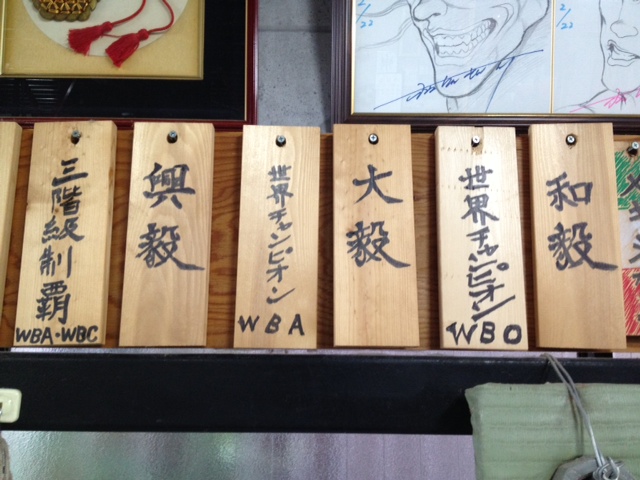 三階級制覇
WBA・WBC
興毅
世界チャンピオン
WBA
大毅
世界チャンピオン
WBO
和毅
2/22
2/22